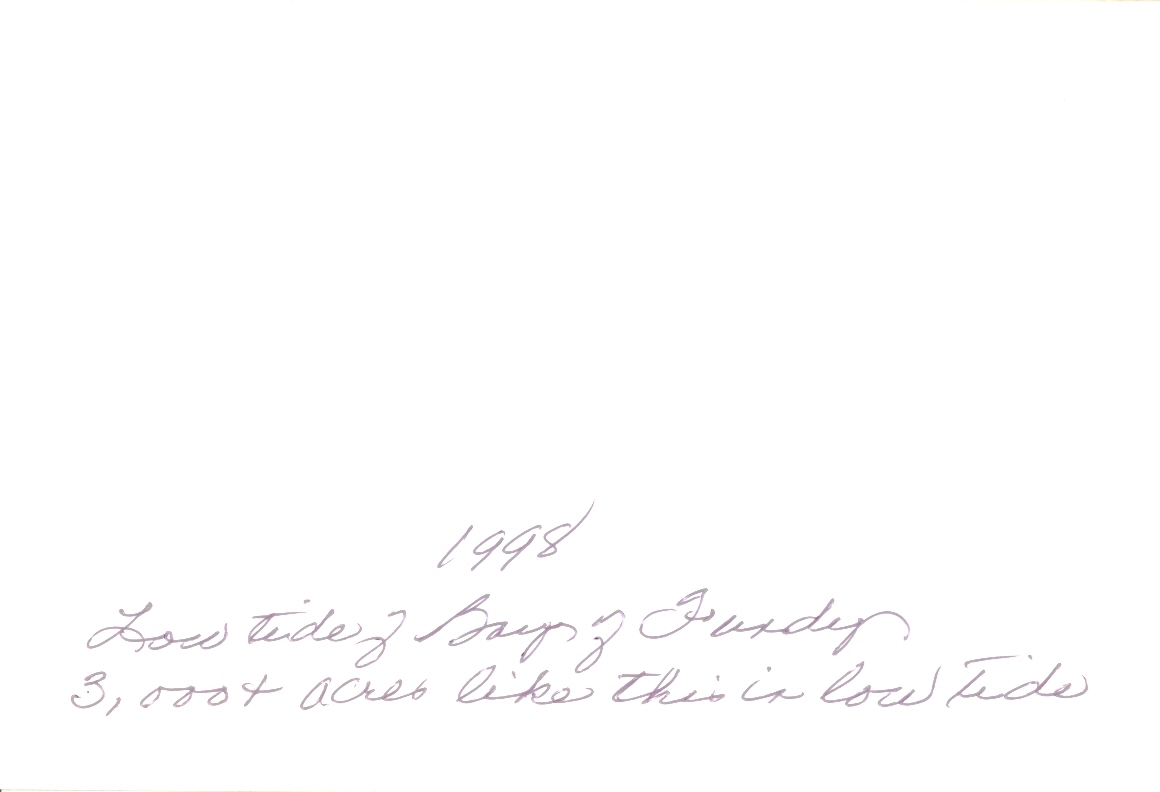 1998
Low tide of Bay of Fundy
3,000+ acres like this in low Tide